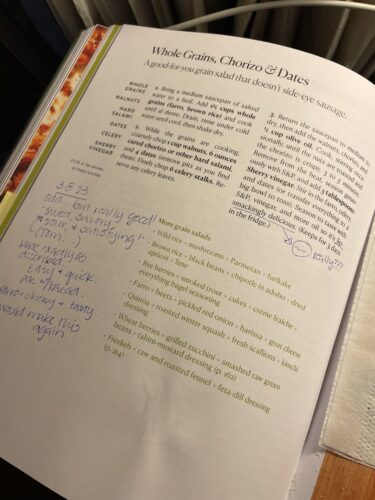 Whole Grains, Chorizo & Dates
A good-for-you grain salad that doesn't side-eye sausage.
WHOLE
GRAINS
WALNUTS
HARD
SALAMI
DATES
CELERY
SHERRY
VINEGAR
FOR 4 (or lunches
1. Bring a medium saucepan of salted
water to a boil. Add 1½ cups whole
grains (farro, brown rice) and cook
until al dente. Drain, rinse under cold
water until cool, then shake dry.
2. While the grains are cooking,
coarsely chop 1 cup walnuts, 6 ounces
cured chorizo or other hard salami,
and 4 dates (remove pits as you find
them). Finely chop 6 celery stalks. Re-
serve any celery leaves.
3. Return the saucepan to medium to
dry, then add the walnuts, chorizo, and
¼ cup olive oil. Cook, stirring occa-
sionally, until the nuts are toasted and
the chorizo is crisp, 3 to 5 minutes.
Season with S&P and add 3 tablespoons
Sherry vinegar. Stir in the farro, celery,
and dates (or transfer everything to a
big bowl to toss). Season to taste with
S&P, vinegar, and more oil so it's lip-
smackingly delicious. (Keeps for 3 days
in the fridge.)
really??
3.5.23
odd... but really good!
sweet, savory,
sour, & satisfying!
(Tom...)
Made exactly as
described
Easy & quick.
farro - chewy & tasty
would make this
again
More grain salads
· Wild rice + mushrooms + Parmesan + furikake
· Brown rice + black beans + chipotle in adobo + dried
apricot + lime
· Rye berries + smoked trout + cukes + crème fraîche +
everything bagel seasoning
· Farro + beets + pickled red onion + harissa + goat cheese
· Quinoa + roasted winter squash + fresh scallions + kimchi
dressing
· Wheat berries + grilled zucchini + smashed raw green
beans + tahini-mustard dressing (p. 162)
· Freekeh + raw and roasted fennel + feta-dill dressing
(p. 214)